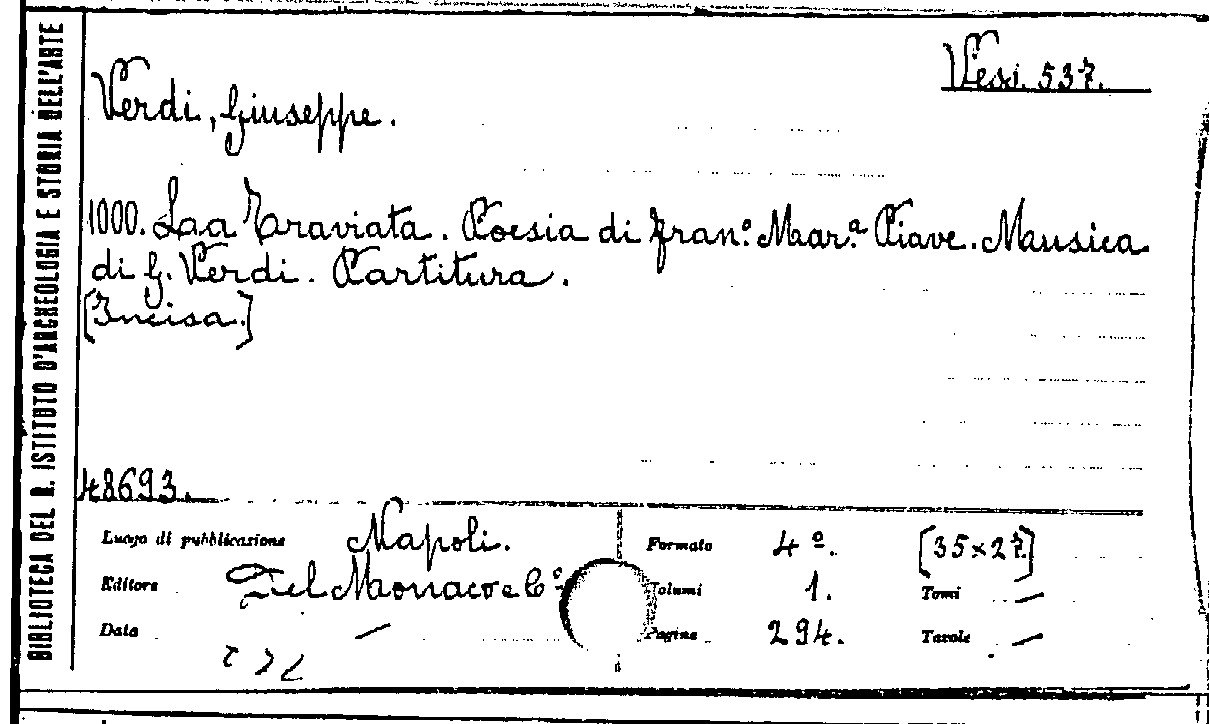 BIBLIOTECA DEL R. ISTITUTO D'ARCHEOLOGIA E STORIA DELL'ARTE
Vess. 537.
Verdi, Giuseppe.
1000. La Traviata. Poesia di Fran.º Mar.ª Piave. Musica
di G. Verdi. Partitura.
[Incisa.]
48693.
Luogo di pubblicazione Napoli.
Editore Del Monaco e C.º
Data —
Formato 4º. [35×27]
Volumi 1. Tomi —
Pagine 294. Tavole —